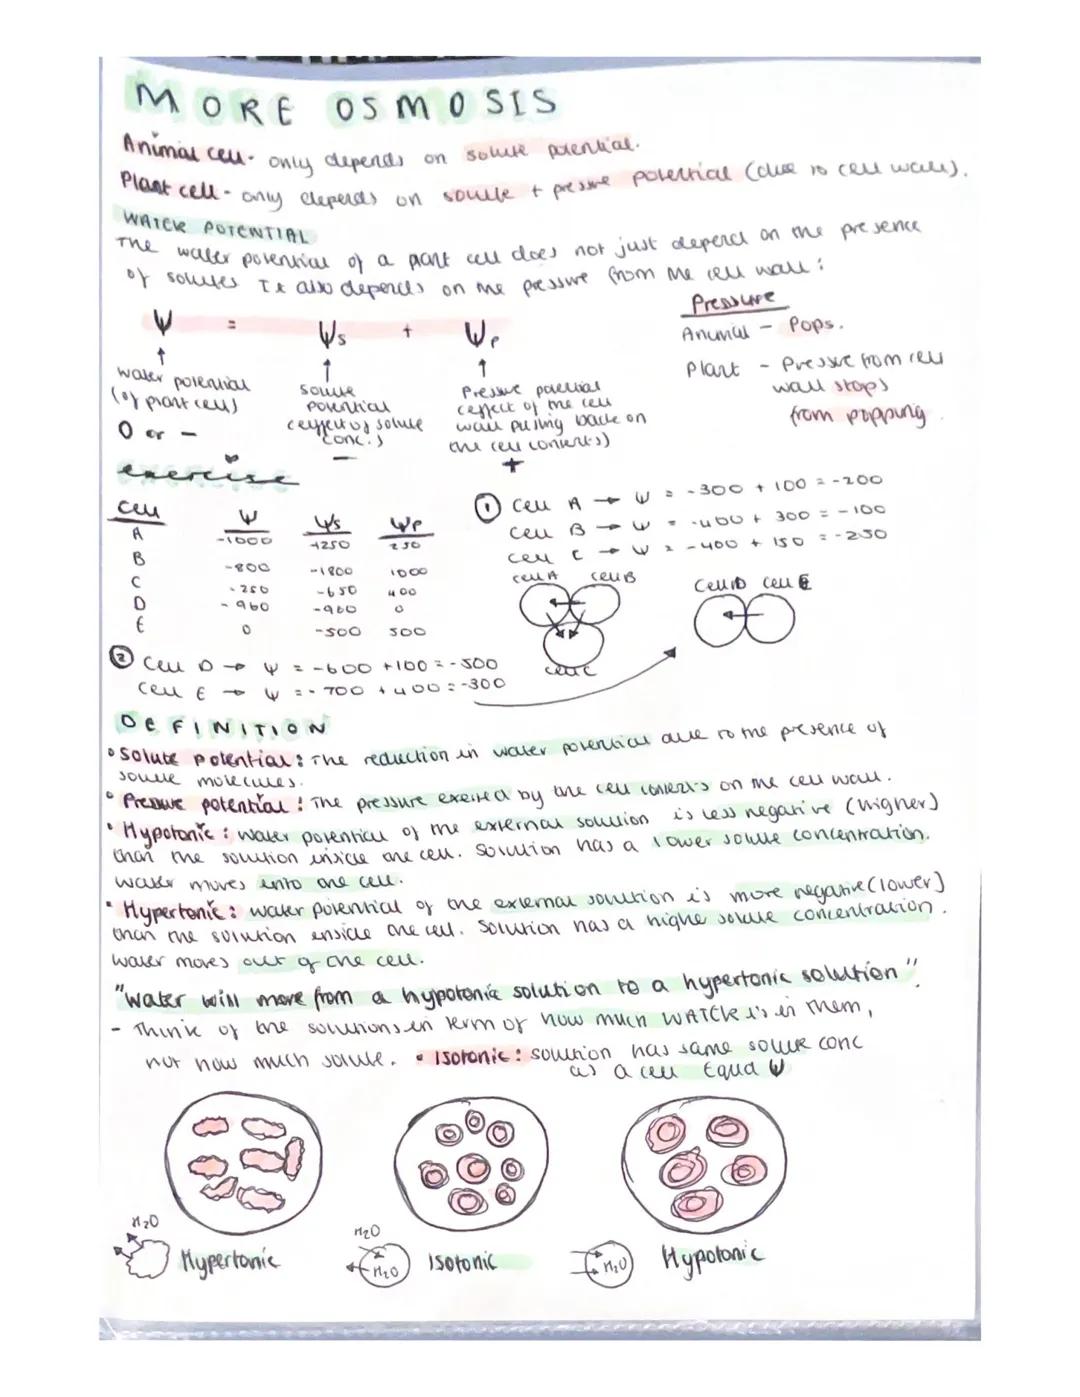 MORE OSMOSIS
Animal cell - only depends on solute potential.
Plant cell - only depends on solute + pressure potential (due to cell wall).
WATER POTENTIAL
The water potential of a plant cell does not just depend on the presence
of solutes It also depends on the pressure from the cell wall:
Ψ = Ψs + Ψp
↑ ↑ ↑
water potential
(of plant cell)
0 or -
solute
potential
(effect of solute
conc.)
-
Pressure potential
(effect of the cell
wall pushing back on
the cell contents)
+
Pressure
Animal - Pops.
Plant - Pressure from cell
wall stops
from popping.
exercise
cell Ψ Ψs Ψp
A -1000 -1250 250
B -800 -1800 1000
C -250 -650 400
D -960 -960 0
E 0 -500 500
① Cell A → Ψ = -300 + 100 = -200
Cell B → Ψ = -400 + 300 = -100
Cell C → Ψ = -400 + 150 = -250
cell A cell B
cell C
Cell D cell E
② Cell D → Ψ = -600 + 100 = -500
Cell E → Ψ = -700 + 400 = -300
DEFINITION
• Solute potential: The reduction in water potential due to the presence of
solute molecules.
• Pressure potential: The pressure exerted by the cell contents on the cell wall.
• Hypotonic: water potential of the external solution is less negative (higher)
than the solution inside the cell. Solution has a lower solute concentration.
Water moves into the cell.
• Hypertonic: water potential of the external solution is more negative (lower)
than the solution inside the cell. Solution has a highe solute concentration.
Water moves out of the cell.
"water will move from a hypotonic solution to a hypertonic solution".
- Think of the solutions in term of how much WATER is in them,
not how much solute. • Isotonic: solution has same solute conc
as a cell Equal Ψ
H2O
Hypertonic
H2O
H2O
Isotonic
H2O
Hypotonic